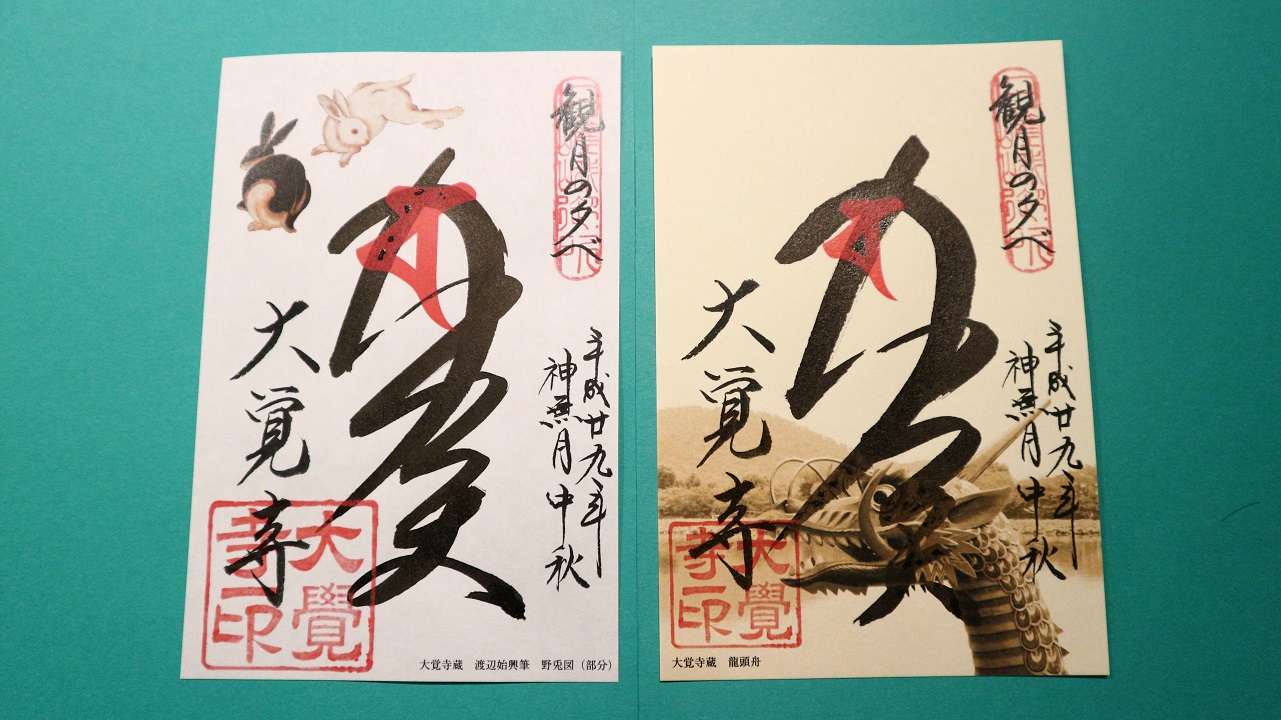 観月の夕べ
平成廿九年
神無月中秋
大覚寺
大覺
寺印
大覚寺蔵　渡辺始興筆　野兎図（部分）
観月の夕べ
平成廿九年
神無月中秋
大覚寺
大覺
寺印
大覚寺蔵　龍頭舟